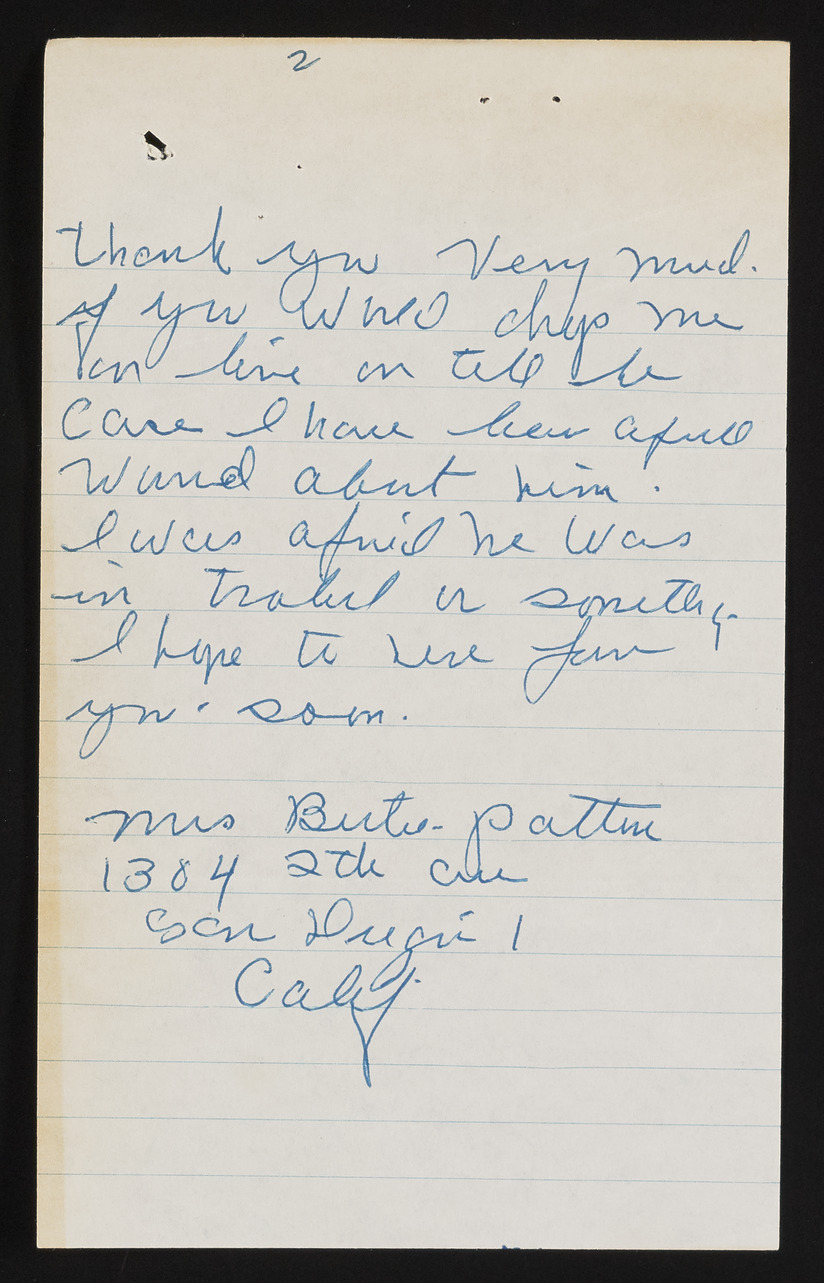 2
thank you Very much.
if you Would drop me
an line an tell be
Case I have been afuld
Wurred about him.
I was afriid he Was
in trobul or somethg.
I hope to here from
you. soon.
Mrs Patton
1304 2th ave
San Diego 1
Calif